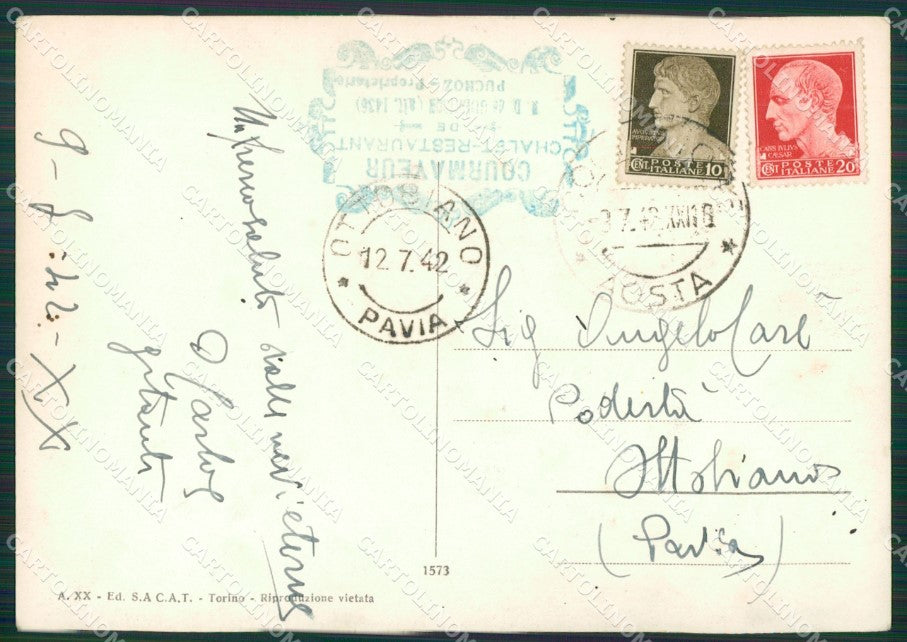 COURMAYEUR
DE
CHALET-RESTAURANT
PUCHOZ Proprietario
AVGVSTVS
CENT. POSTE ITALIANE 10
CAIVS IVLIVS CAESAR
CENT. POSTE ITALIANE 20
OTTOBIANO
12.7.42
PAVIA
7.42.XX
AOSTA
Un
dalle nevi eterne
9-7-:42:-XX
Sig. Angelo
Podestà
Ottobiano
(Pavia)
1573
A. XX - Ed. S.A C.A.T. - Torino - Riproduzione vietata
CARTOLINOMANIA